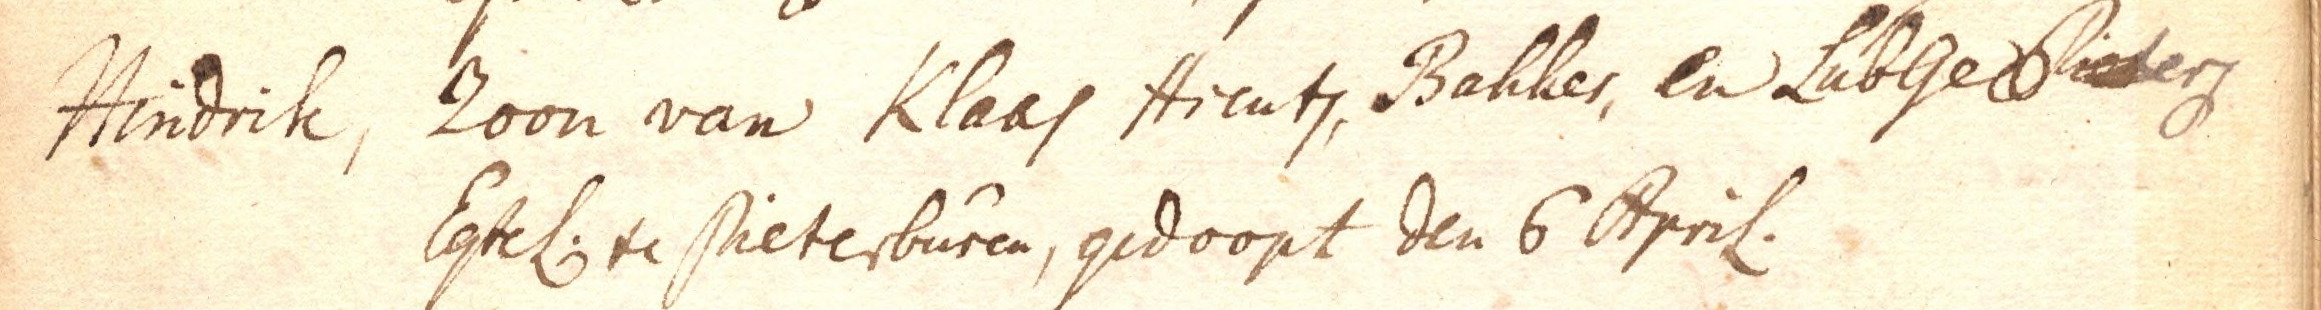 Hindrik, Zoon van Klaas Hientz, Bakker, en LubGe Pieterz
Egtel: te Pieterburen, gedoopt den 6 April.